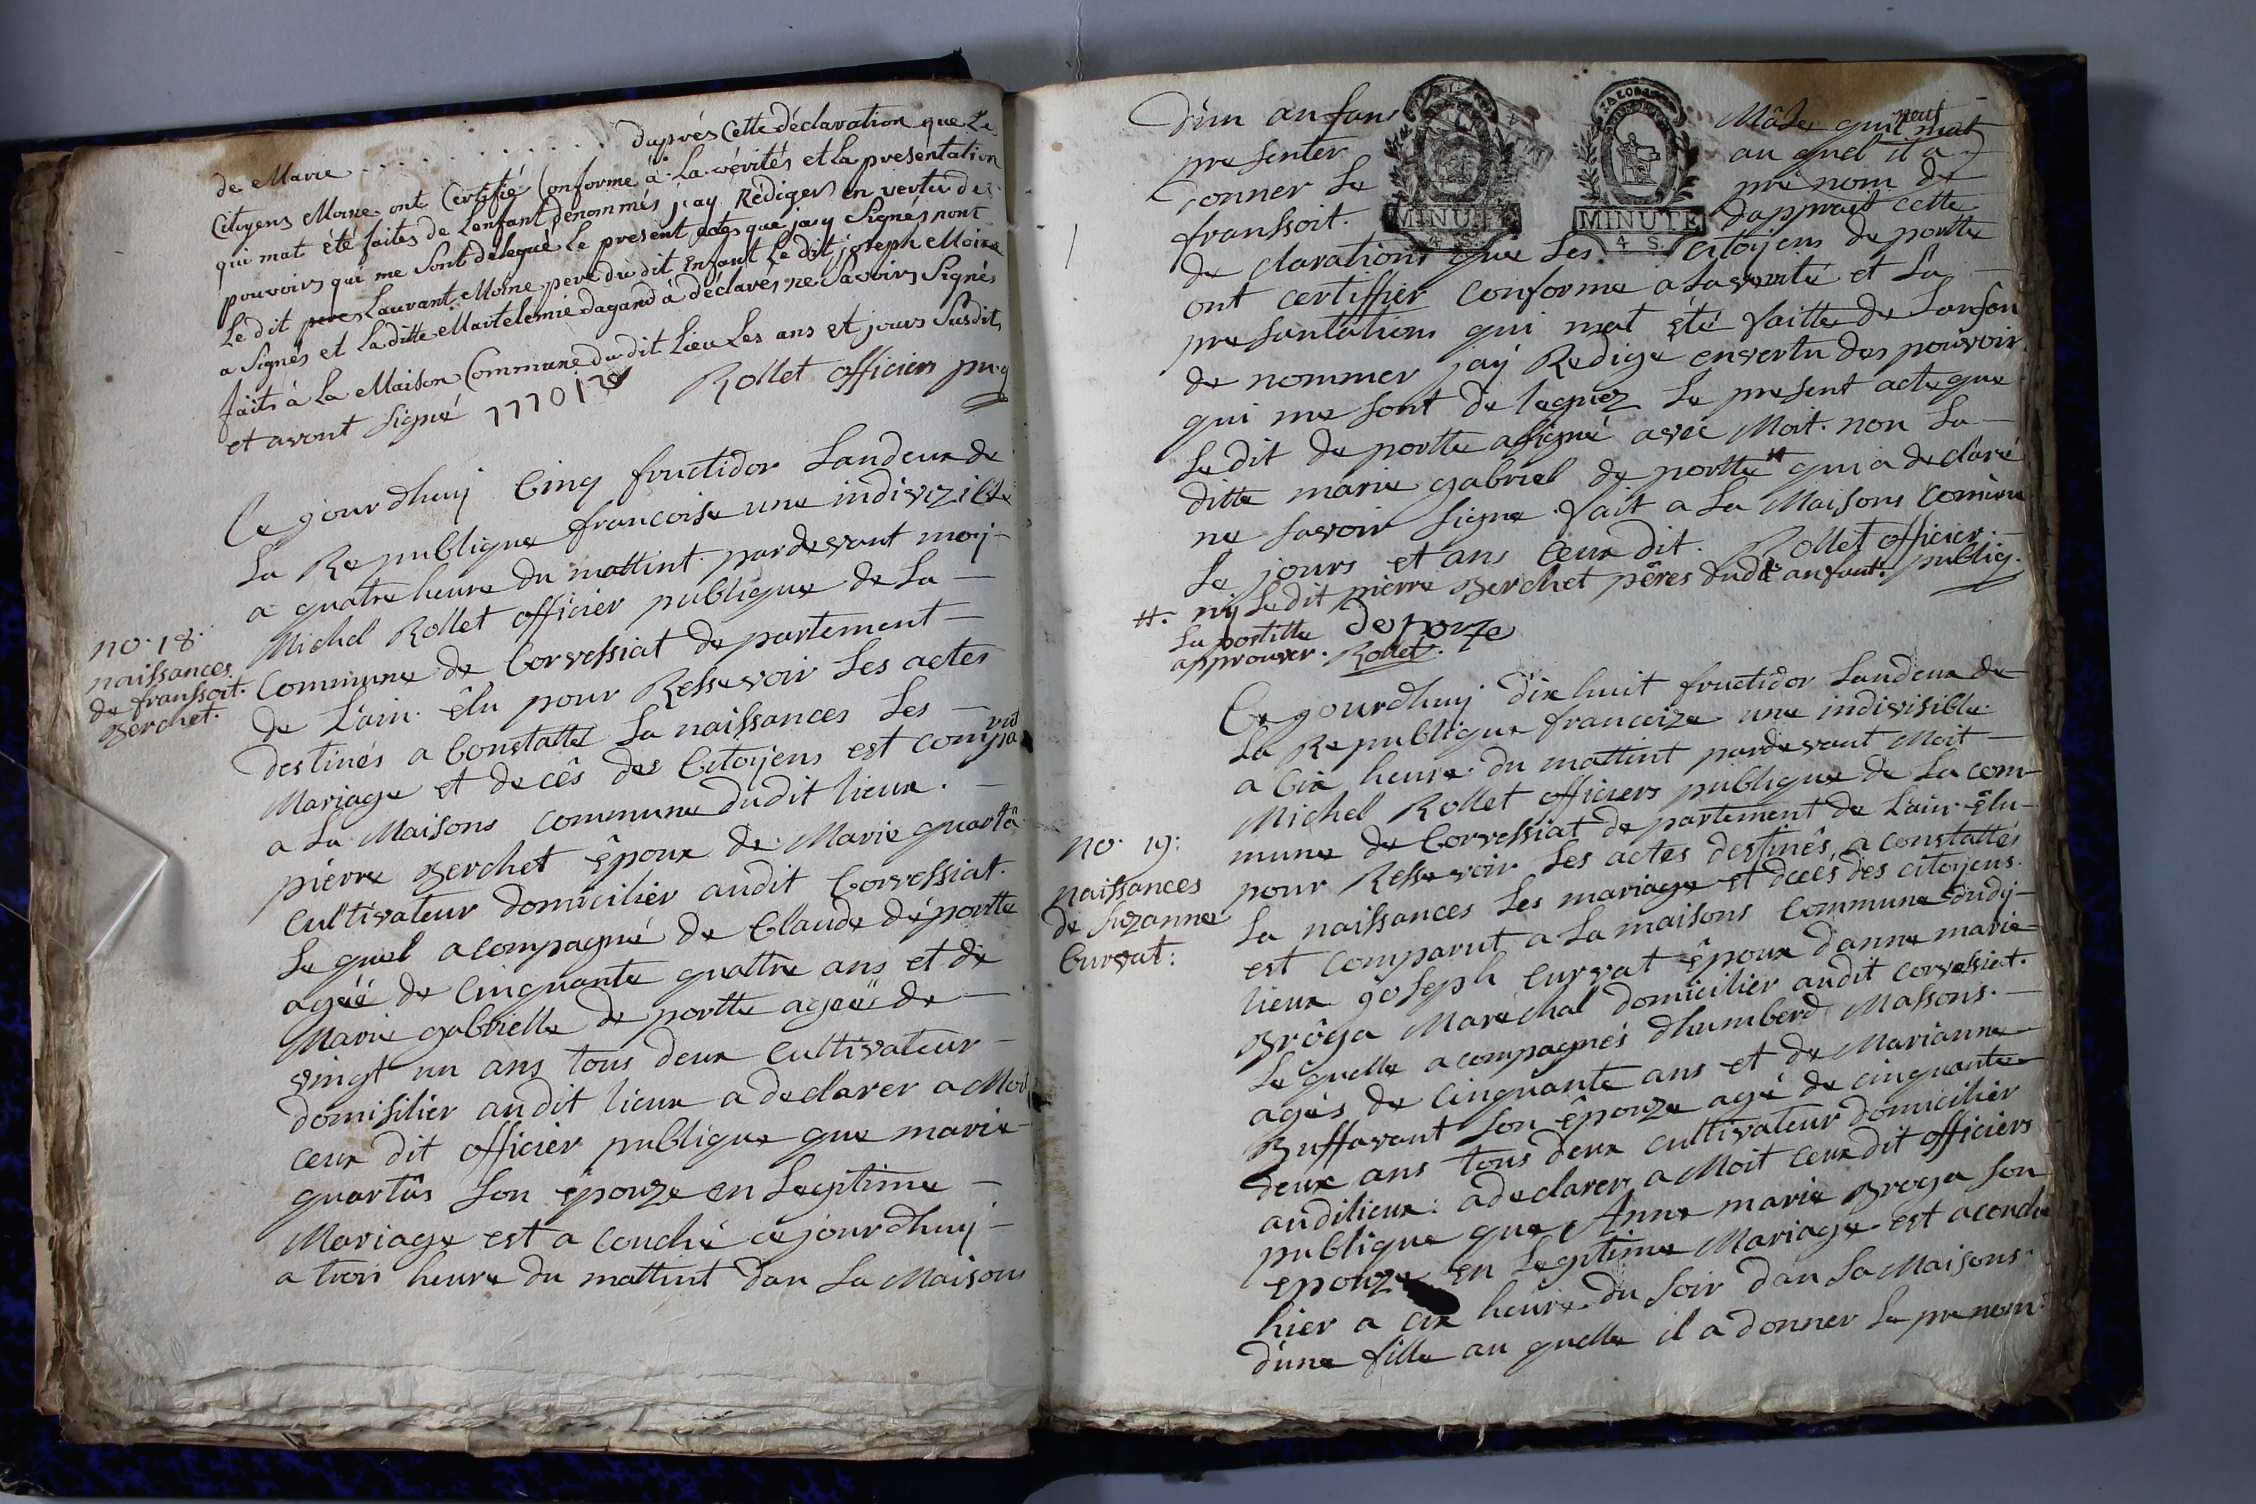 de Marie . . . . . . . . . . . . . . . daprés Cette déclaration que Le
Citoyens Moine ont Certifié Conforme á La véritës et La presentation
qui mat été faites de Lenfant dénommés jay Rédiger en vertu des
pouvoirs qui me Sont délegué Le present acte que jay Signés nont
Le dit pere Laurant Moine pere du dit Enfant Le dit joseph Moine
a Signés et La ditte Martelemie dagand á déclarés ne Savoirs Signés
faits á La Maison Commune du dit Lieu Les ans et jours Susdits
et avont signé Rollet officier pu.q
no. 18.
naissances
de franssoit.
Berchet.
Ce gourdhuy Cinq fructidor Landeux de
La Republique francoise une indivizible
a quatre heure du mattint pardevant moy
Michel Rollet officier publique de La
Commune de Corvessiat departement
de Lain. êlu pour Ressevoir Les actes
destinés a Constatté La naissances Les
Mariage et decês des Citoyens est compa
rut
a La Maisons commune dudit lieux.
pierre Berchet êpoux de Marie quartâ
cultivateur domicilier audit Corvessiat.
Le quel acompagné de Claude déportte
agéé de Cinquante quattre ans et de
Marie gabrielle de portte ageë de
vingt un ans tous deux Cultivateur
domisilier audit lieux a declarer a Moit
ceux dit officier publique que marie
quartâs Son êpouze en Legitime
Mariage est a couché cejourdhuy
a troix heure du mattint dan La Maisons
Dun anfans Mâle quil mat
neut
presenter au quel il a
donner Le prénom de
franssoit. dapprait cette
MINUTE
4 S.
MINUTE
4 S.
declarations que Les Citoyens de portte
ont certiffier Conforme a La verité et La
presantations qui mat été faitte de Lanfan
de nommer jaÿ Redige envertu des pouvoir
qui me sont deleguez Le present acte que
Le dit de portte a signé avec Moit. non La
ditte marie gabriel de portte # qui a declaré
ne savoir signe. fait a La Maisons Commu
Le jours et ans Ceux dit. Rollet officier
publiq.
#. nÿ Ledit pierre Berchet pêres dudt anfant.
La portitte deporte
approuver. Rollet.
no. 19:
naissances
de Suzanne
Curvat:
Ce gourdhuy dix huit fructidor Landeux de
La Republique francoize une indivisible
a Cix heure du mattint pardevant Moit
Michel Rollet officiers publique de La com-
mune de Corvessiat departement de Lain êlu
pour Ressevoir Les actes destinês a constattés
La naissances Les mariage et decés des citoyens.
est Comparut a La maisons Commune dudy
lieux joseph Curvat êpoux danne marie
Brôga Maréchal domicilier audit corvessiat.
Le quelle acompagnés dhumberd Massons.
agés de Cinquante ans et de Marianne
Buffavant Son êpouze agé de cinquante
deux ans tous deux cultivateur domicilier
audilieux: a declarer a Moit ceux dit officiers
publique que Anne marie Broga Son
epouze en Legitime Mariage est acouché
hier a cix heure du Soir dan La Maisons
dune fille au quelle il a donner Le prenom